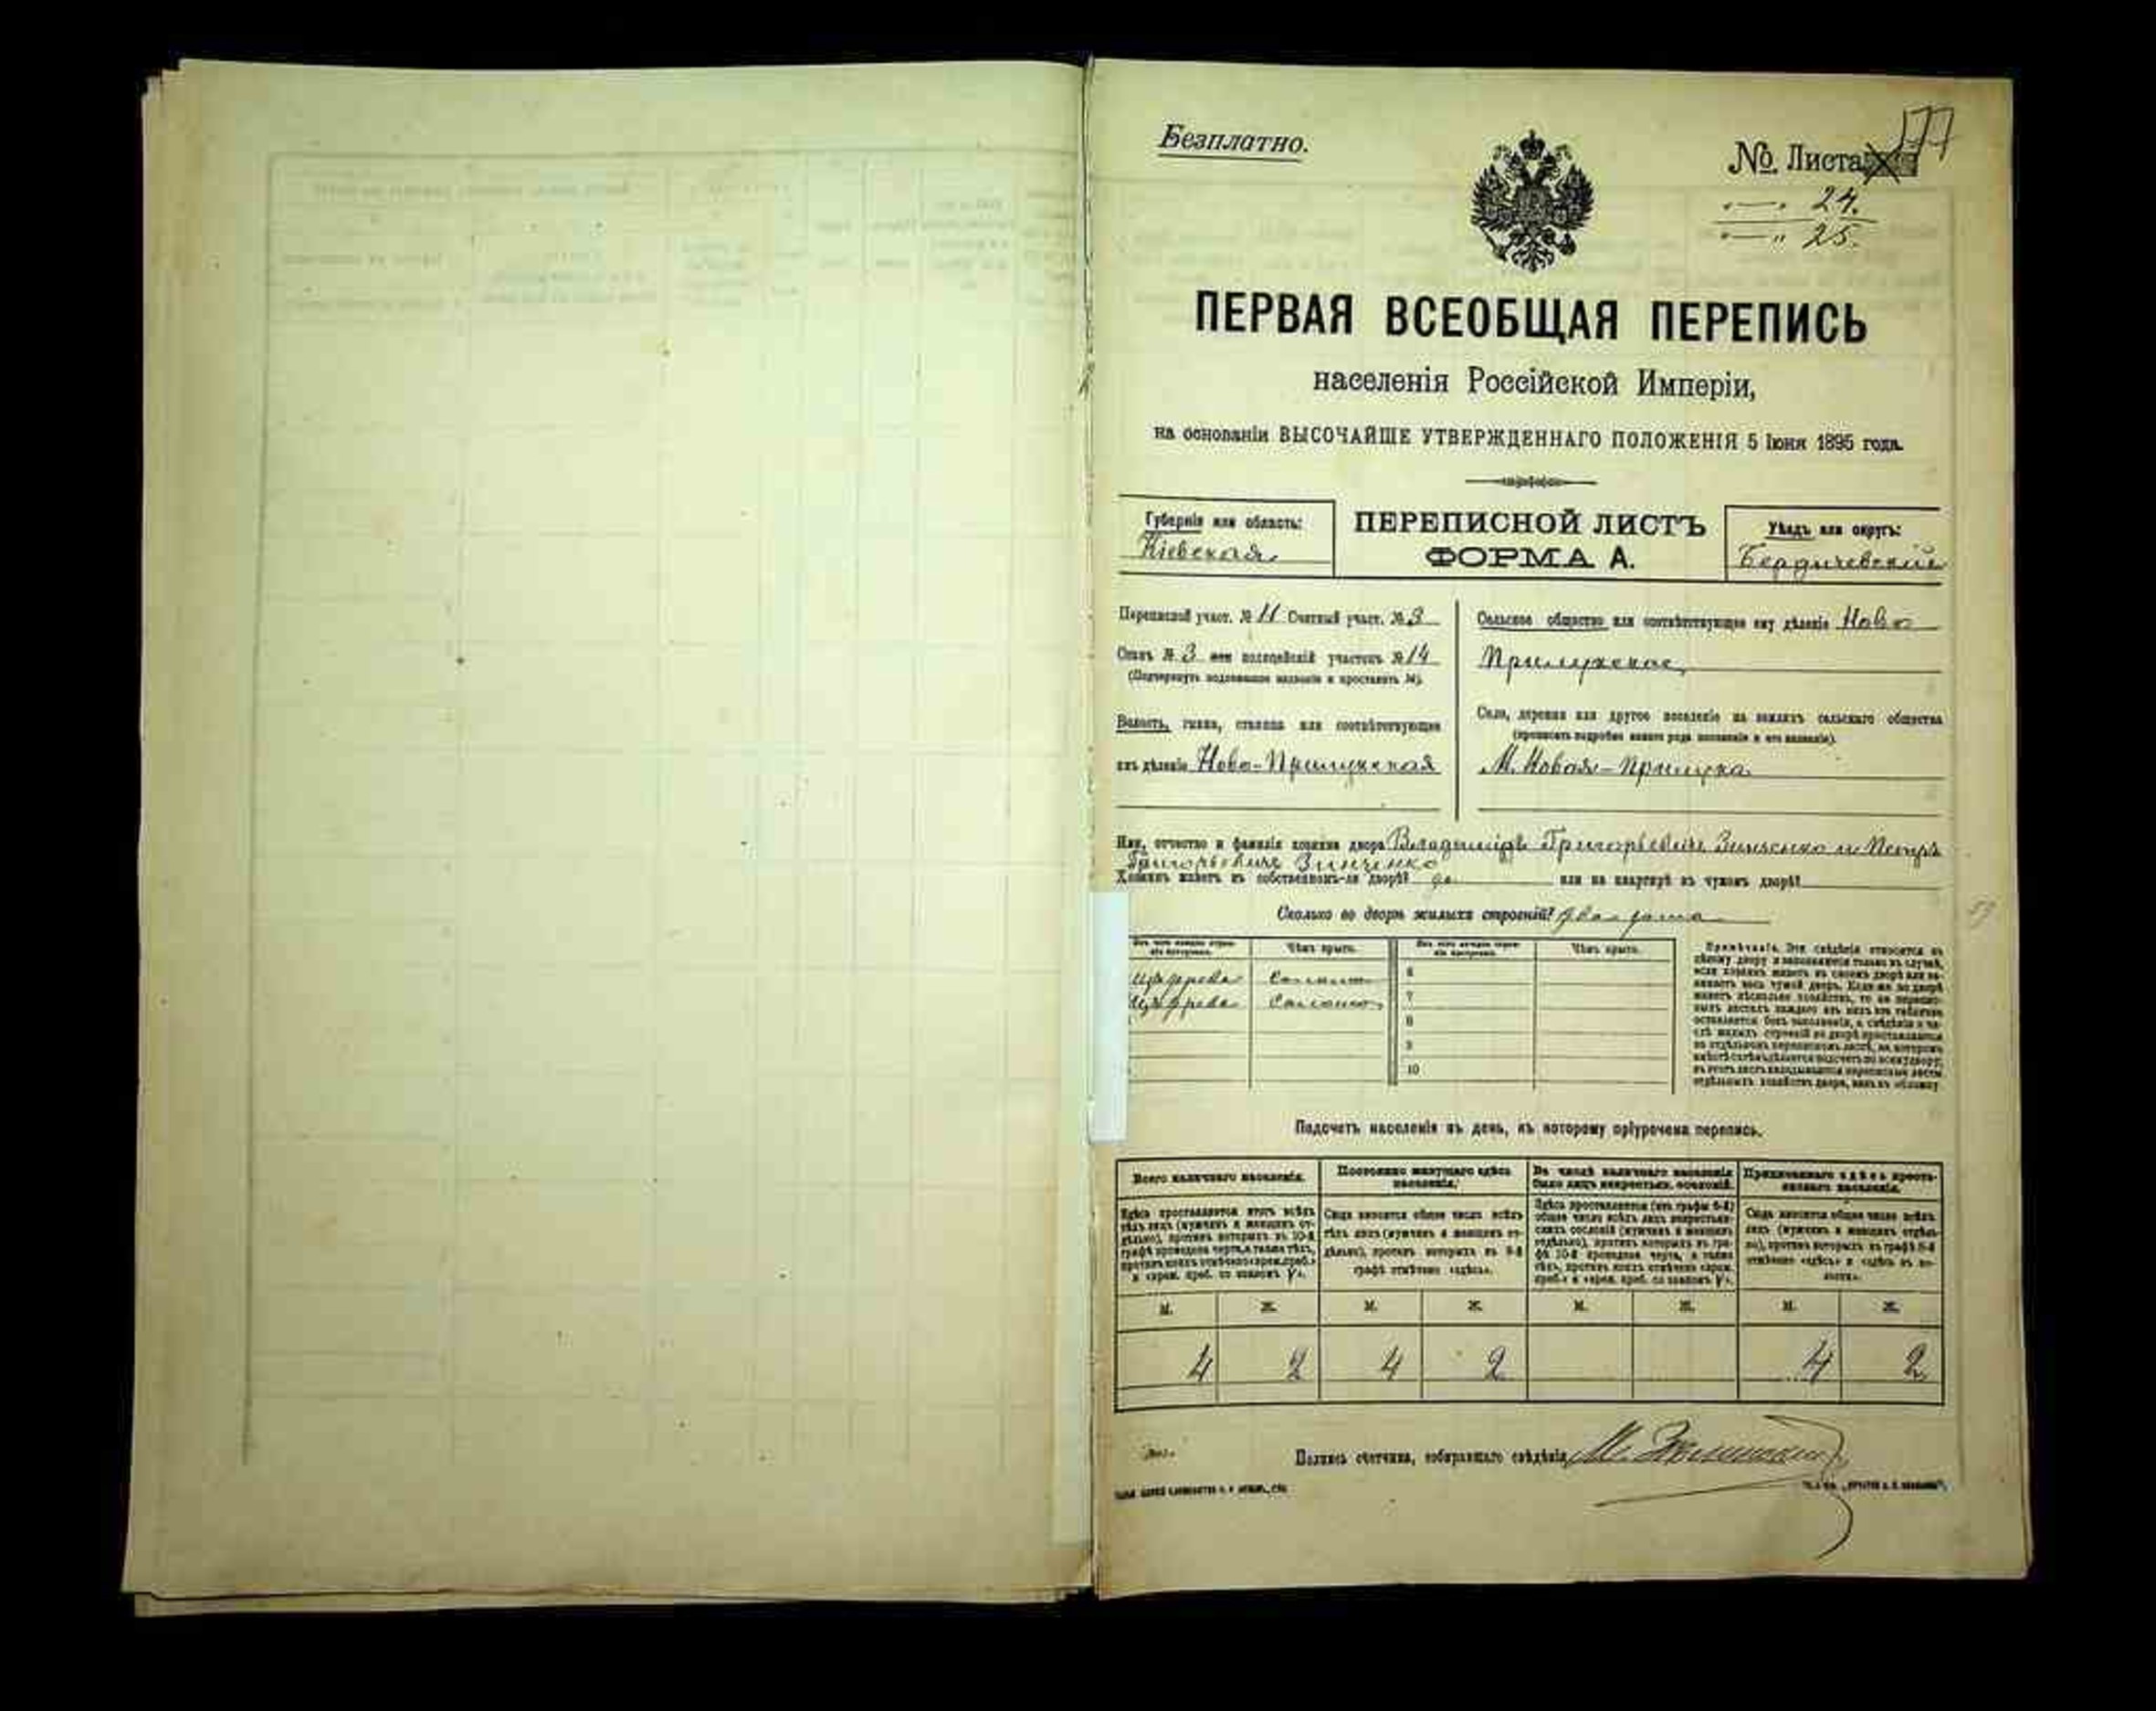 Безплатно.
№ Листа 177
24.
25.
ПЕРВАЯ ВСЕОБЩАЯ ПЕРЕПИСЬ
населенія Россійской Имперіи,
на основаніи ВЫСОЧАЙШЕ УТВЕРЖДЕННАГО ПОЛОЖЕНІЯ 5 Іюня 1895 года.
Губернія или область:
Кіевская
ПЕРЕПИСНОЙ ЛИСТЪ
ФОРМА А.
Уѣздъ или округъ:
Бердичевскій
Переписной участ. № 11 Счетный участ. № 3
Станъ № 3 или полицейскій участокъ № 14
(Подчеркнуть подлежащее названіе и проставить №).
Волость, гмина, станица или соотвѣтствующее
имъ дѣленіе Ново-Прилукская
Сельское общество или соотвѣтствующее ему дѣленіе Ново
Прилукское,
Село, деревня или другое поселеніе на земляхъ сельскаго общества
(прописать подробно какого рода поселеніе и его названіе).
М. Новая-Прилука
Имя, отчество и фамилія хозяина двора Владиміръ Григорьевичъ Зинченко и Петръ
Григорьевичъ Зинченко
Хозяинъ живетъ въ собственномъ-ли дворѣ? да или на квартирѣ въ чужомъ дворѣ?
Сколько во дворѣ жилыхъ строеній? два дома
Изъ чего каждое строеніе построено.
Чѣмъ крыто.
Изъ чего каждое строеніе построено.
Чѣмъ крыто.
соломою
6
соломою
7
8
9
10
Примѣчаніе. Эти свѣдѣнія относятся къ
цѣлому двору и заполняются только въ случаѣ,
если хозяинъ живетъ въ своемъ дворѣ или за-
нимаетъ весь чужой дворъ. Если же во дворѣ
имѣетъ нѣсколько хозяйствъ, то на перепис-
ныхъ листахъ каждаго изъ нихъ эта таблица
оставляется безъ заполненія, а свѣдѣнія о чи-
слѣ жилыхъ строеній во дворѣ проставляются
на отдѣльномъ переписномъ листѣ, на которомъ
вмѣстѣ съ тѣмъ дѣлается подсчетъ по всему двору;
въ этотъ листъ вкладываются переписные листы
отдѣльныхъ хозяйствъ двора, какъ въ обложку.
Подсчетъ населенія въ день, къ которому пріурочена перепись.
Всего наличнаго населенія.
Постоянно живущаго здѣсь населенія.
Въ числѣ наличнаго населенія было лицъ некрестьян. сословій.
Приписаннаго здѣсь крестьянскаго населенія.
Здѣсь проставляется итогъ всѣхъ
тѣхъ лицъ (мужчинъ и женщинъ от-
дѣльно), противъ которыхъ въ 10-й
графѣ проведена черта, а также тѣхъ,
противъ коихъ отмѣчено «врем. преб.»
и «врем. преб. со знакомъ V».
Сюда вносится общее число всѣхъ
тѣхъ лицъ (мужчинъ и женщинъ от-
дѣльно), противъ которыхъ въ 9-й
графѣ отмѣчено «здѣсь».
Здѣсь проставляется (изъ графы 6-й)
общее число всѣхъ лицъ некрестьян-
скихъ сословій (мужчинъ и женщинъ
отдѣльно), противъ которыхъ въ гра-
фѣ 10-й проведена черта, а также
тѣхъ, противъ коихъ отмѣчено «врем.
преб.» и «врем. преб. со знакомъ V».
Сюда вносится общее число всѣхъ
лицъ (мужчинъ и женщинъ отдѣль-
но), противъ которыхъ въ графѣ 8-й
отмѣчено «здѣсь» и «здѣсь въ во-
лости».
М. Ж. М. Ж. М. Ж. М. Ж.
4 2 4 2 4 2
Подпись счетчика, собиравшаго свѣдѣнія